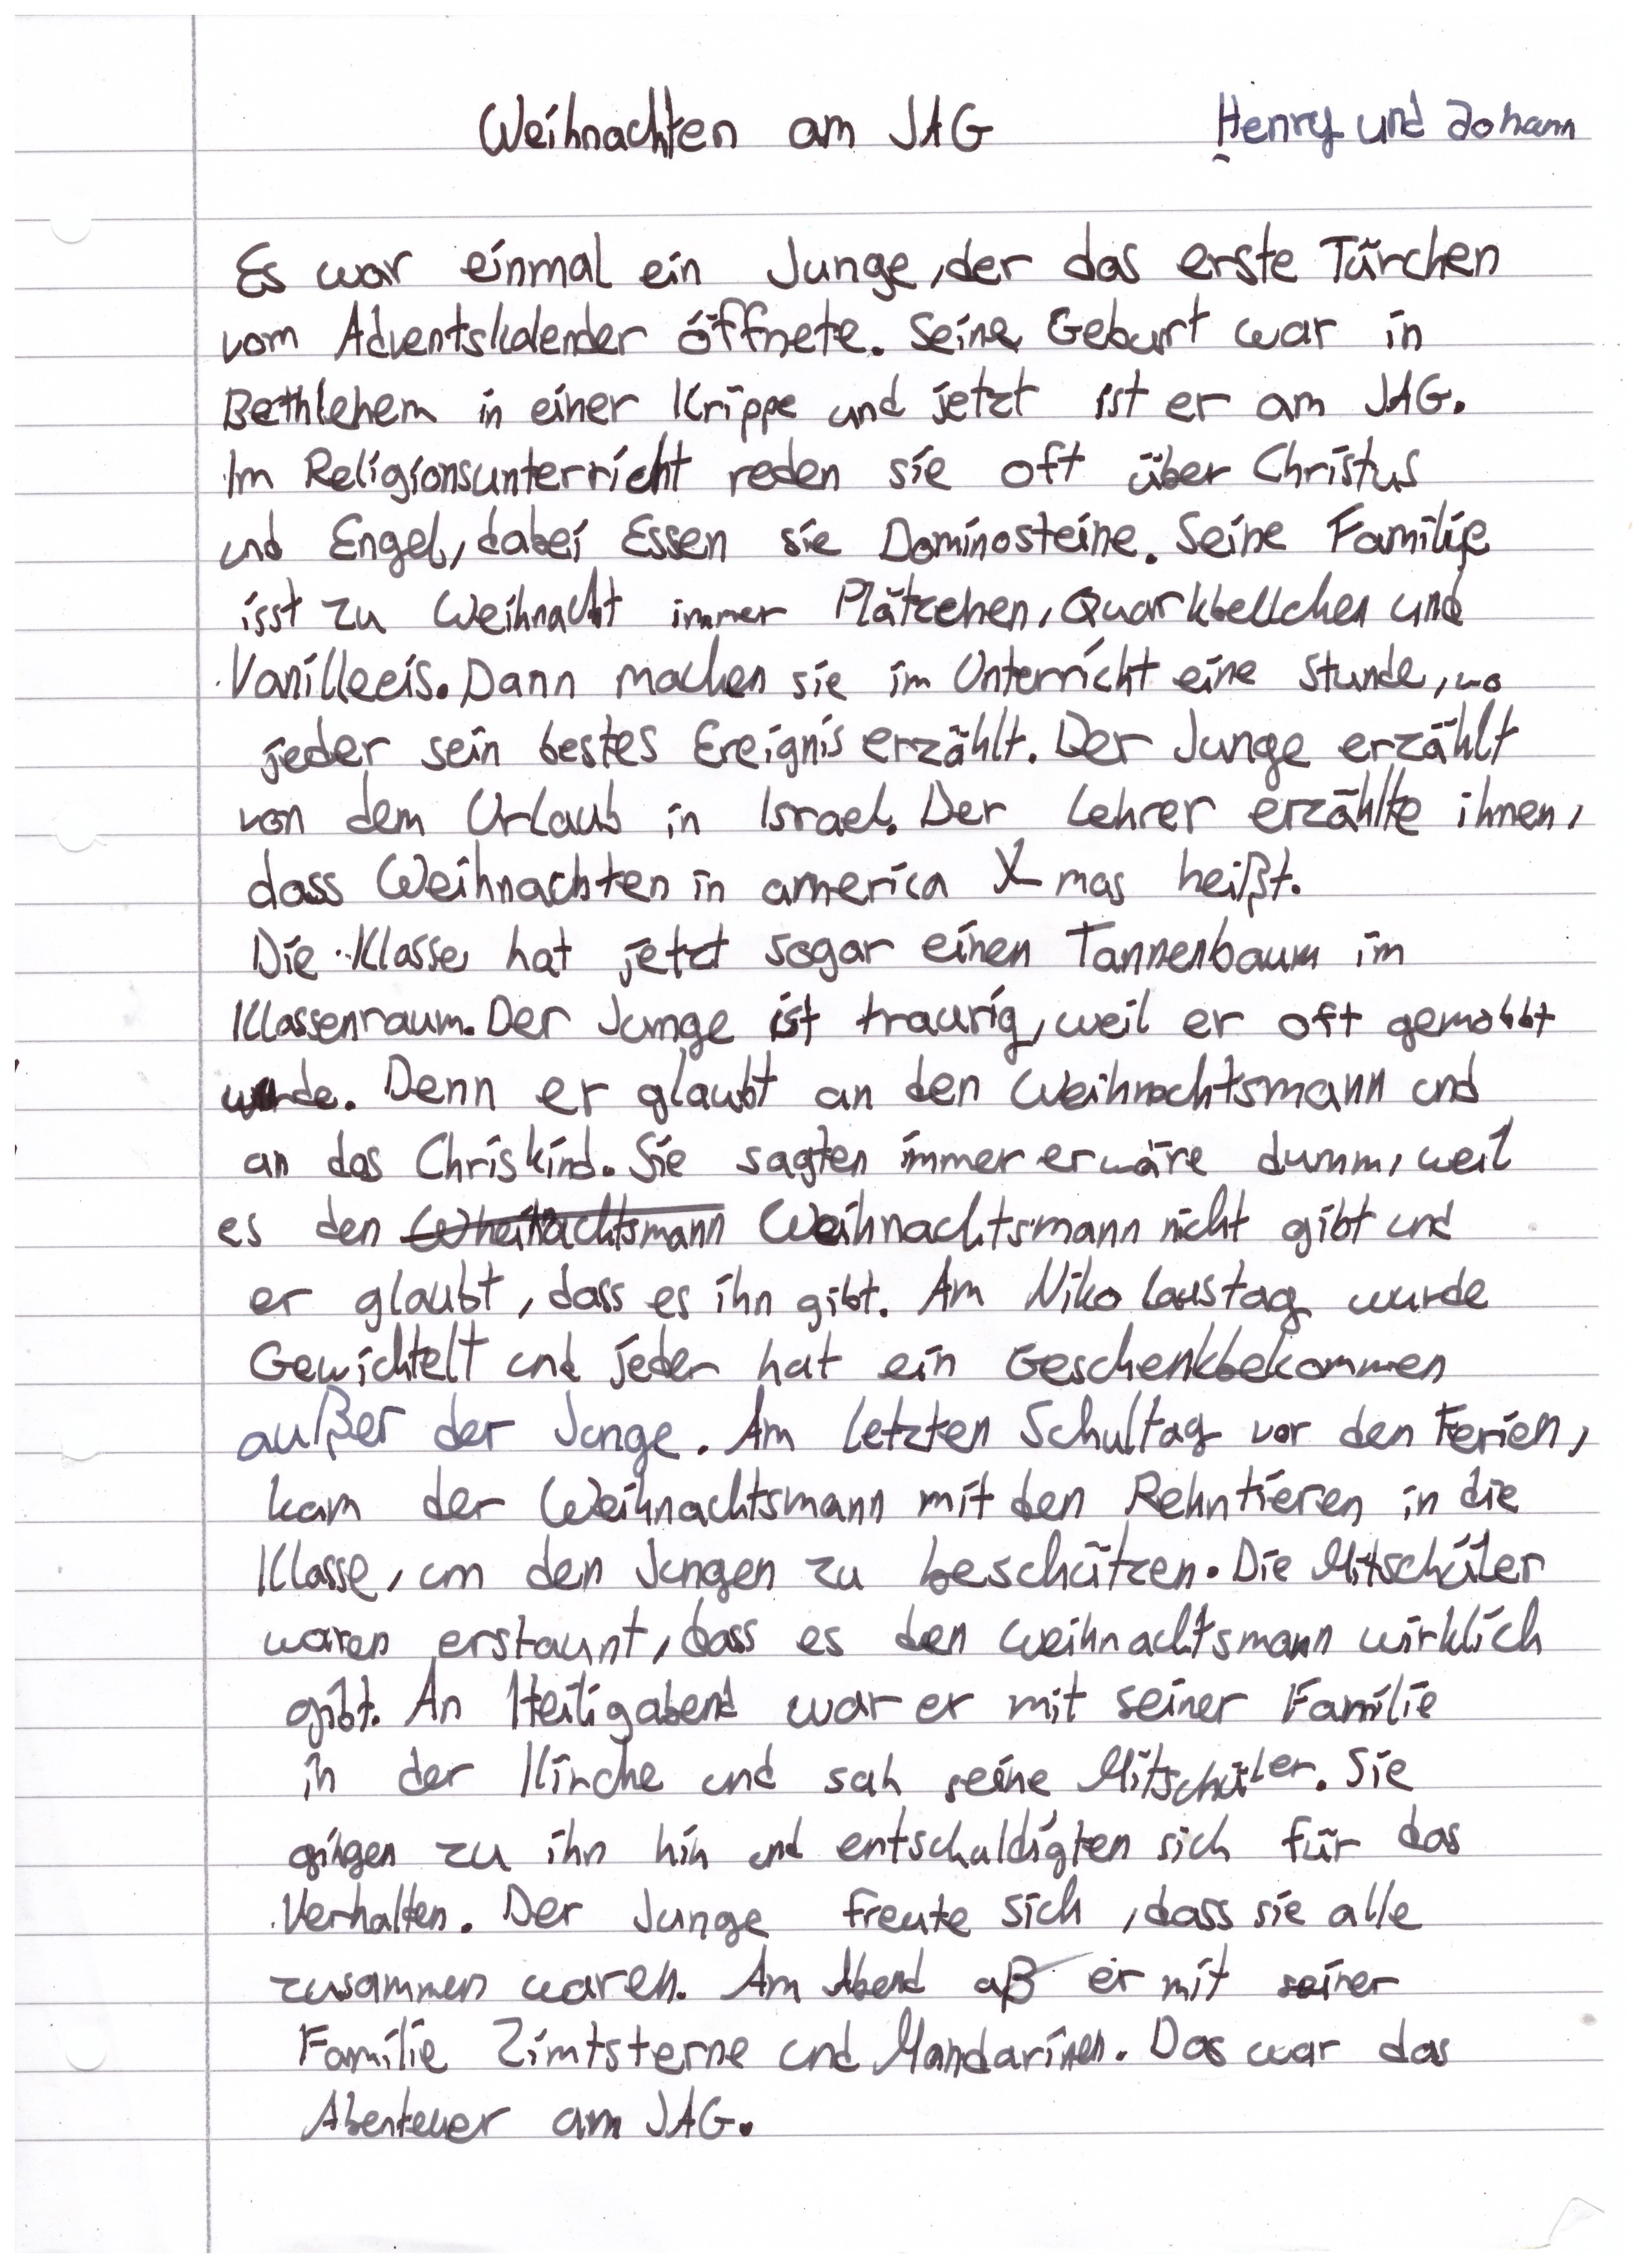 Weihnachten am JAG Henry und Johann
Es war einmal ein Junge, der das erste Türchen
vom Adventskalender öffnete. Seine Geburt war in
Bethlehem in einer Krippe und jetzt ist er am JAG.
Im Religionsunterricht reden sie oft über Christus
und Engel, dabei Essen sie Dominosteine. Seine Familie
isst zu Weihnacht immer Plätzchen, Quarkbellchen und
Vanilleeis. Dann machen sie im Unterricht eine Stunde, wo
jeder sein bestes Ereignis erzählt. Der Junge erzählt
von dem Urlaub in Israel. Der Lehrer erzählte ihnen,
dass Weihnachten in america X mas heißt.
Die Klasse hat jetzt sogar einen Tannenbaum im
Klassenraum. Der Junge ist traurig, weil er oft gemobbt
wurde. Denn er glaubt an den Weihnachtsmann und
an das Chriskind. Sie sagten immer er wäre dumm, weil
es den Wheinachtsmann Weihnachtsmann nicht gibt und
er glaubt, dass es ihn gibt. Am Nikolaustag wurde
Gewichtelt und jeder hat ein Geschenkbekommen
außer der Junge. Am letzten Schultag vor den Ferien,
kam der Weihnachtsmann mit den Rehntieren in die
Klasse, um den Jungen zu beschützen. Die Mitschüler
waren erstaunt, dass es den Weihnachtsmann wirklich
gibt. An Heiligabend war er mit seiner Familie
in der Kirche und sah seine Mitschüler. Sie
gingen zu ihn hin und entschuldigten sich für das
Verhalten. Der Junge freute sich, dass sie alle
zusammen waren. Am Abend aß er mit seiner
Familie Zimtsterne und Mandarinen. Das war das
Abenteuer am JAG.